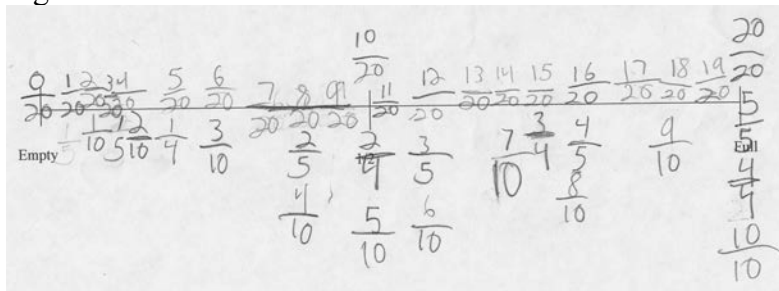 0/20 1/20 2/20 3/20 4/20 5/20 6/20 7/20 8/20 9/20 10/20 11/20 12/20 13/20 14/20 15/20 16/20 17/20 18/20 19/20 20/20
Empty 1/10 1/5 2/10 1/4 3/10 2/5 2/4 3/5 7/10 3/4 4/5 9/10 5/5 Full
4/10 5/10 6/10 8/10 4/4
10/10